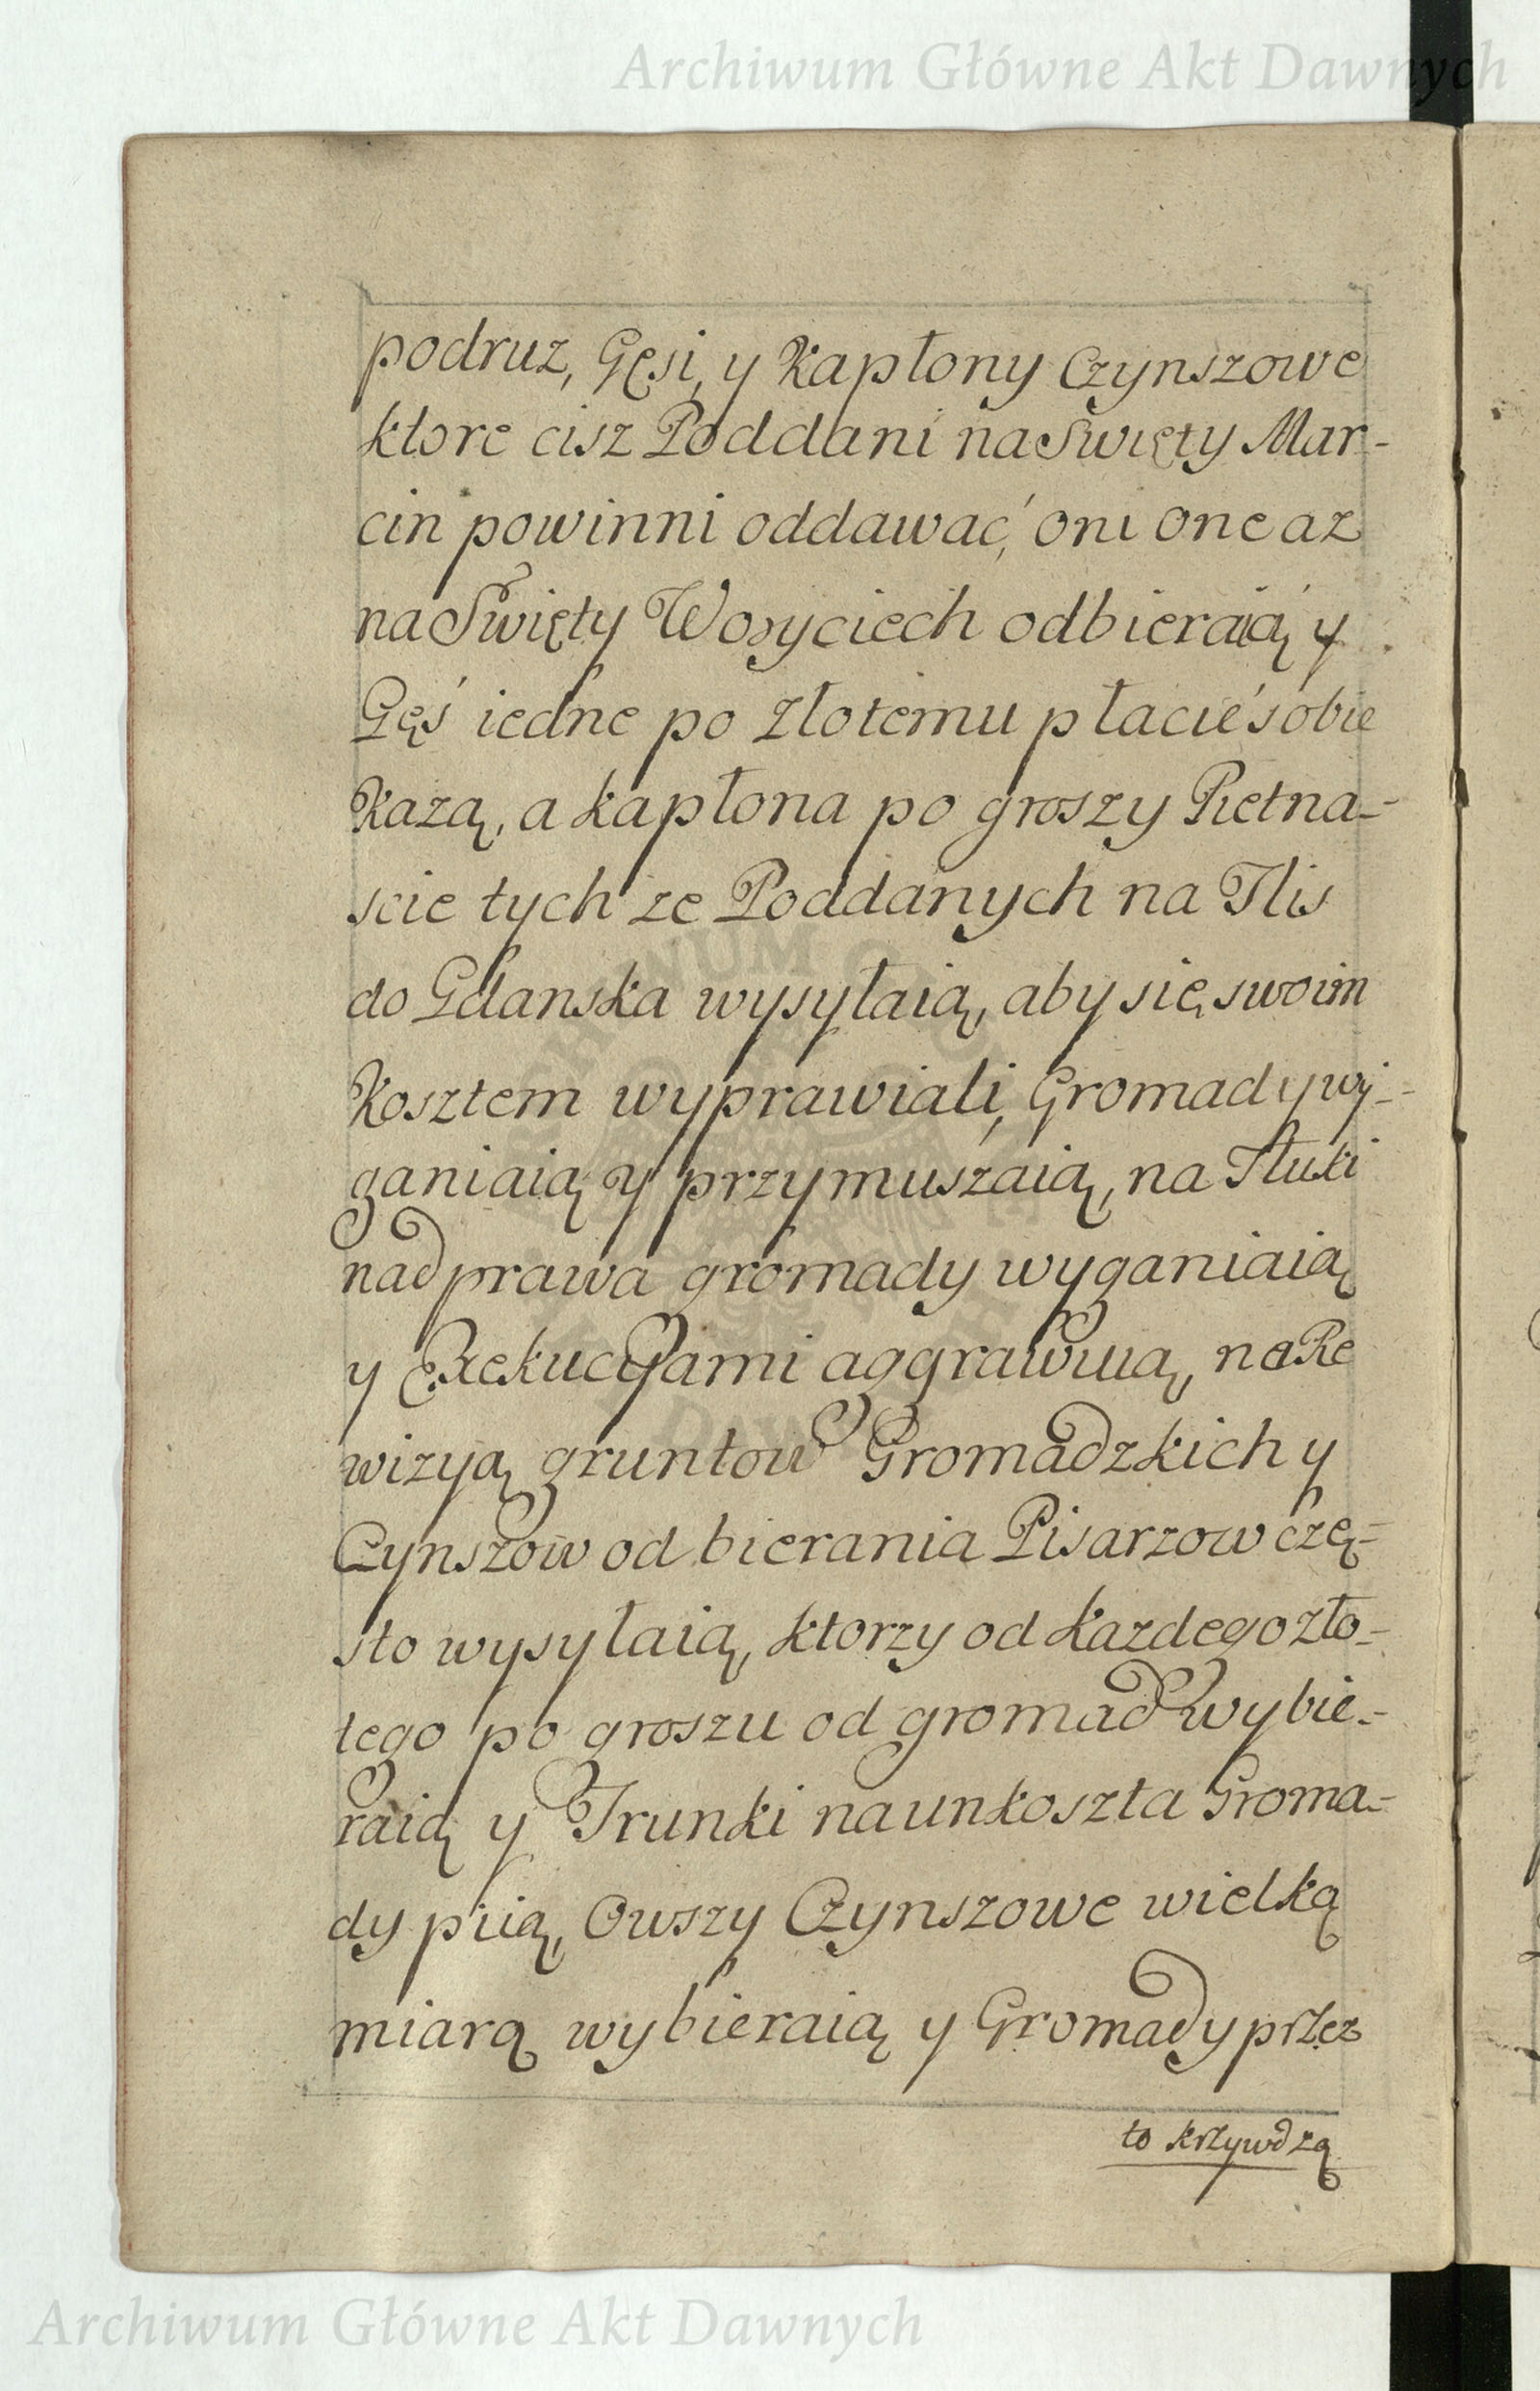 Archiwum Główne Akt Dawnych
podruz, Gęsi, y Kapłony Czynszowe
ktore cisz Poddani na Swięty Mar-
cin powinni oddawać, oni one az
na Swięty Woyciech odbieraią y
Gęś iedne po Złotemu płacić sobie
Kazą, a kapłona po groszy Pietna-
scie tych ze Poddanych na Flis
do Gdanska wysyłaią, aby się swoim
Kosztem wyprawiali, Gromady wy-
ganiaią y przymuszaią, na Tłuki
nad prawa gromady wyganiaią
y Exekucyami aggrawuią, na Re
wizyą gruntow Gromadzkich y
Czynszow odbierania Pisarzow czę-
sto wysyłaią, ktorzy od kazdego zło-
tego po groszu od gromad wybie-
raią y Trunki na unkoszta Groma-
dy piią, Owszy Czynszowe wielką
miarą wybieraią y Gromady przez
to krzywdzą
Archiwum Główne Akt Dawnych